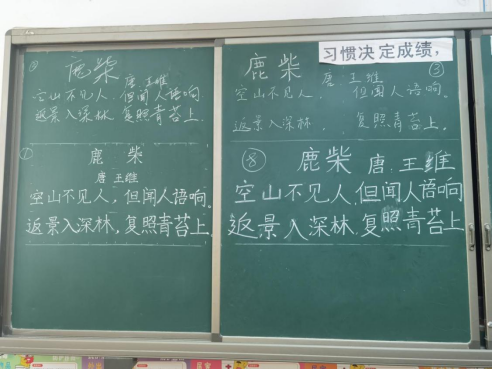 鹿柴
唐 王维
空山不见人,但闻人语响
返景入深林 复照青苔上
①
鹿 柴
唐 王维
空山不见人,但闻人语响
返景入深林,复照青苔上.
习惯决定成绩,
鹿柴
唐 王维 ③
空山不见人, 但闻人语响.
返景入深林, 复照青苔上.
⑧ 鹿柴 唐 王维
空山不见人,但闻人语响
返景入深林.复照青苔上.